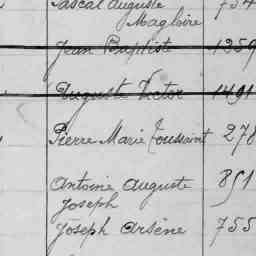 Pascal Auguste 754
Magloire
Jean Baptiste 1259
Auguste Victor 1491
Pierre Marie Toussaint 278
Antoine Auguste 851
Joseph
Joseph Arsène 755